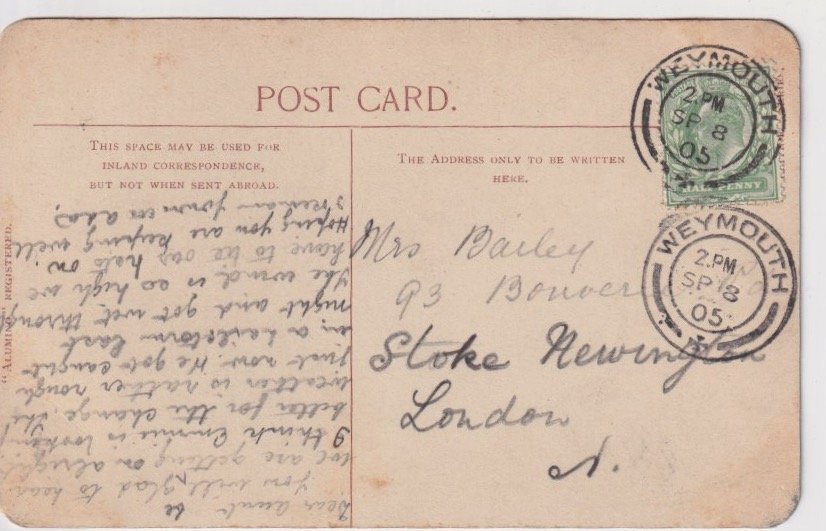 POST CARD.
THIS SPACE MAY BE USED FOR
INLAND CORRESPONDENCE,
BUT NOT WHEN SENT ABROAD.
THE ADDRESS ONLY TO BE WRITTEN
HERE.
REGISTERED.
Dear Aunt
you will be glad to hear
we are getting on alright
I think Emmie is looking
better for the change. The
weather is rather rough
just now. We got caught
in a hailstorm last
night and got wet through
the wind is so high we
have to tie our hats on.
Hoping you are keeping well
I remain yours
Mrs Bailey
93
Stoke Newington
London
N.
WEYMOUTH
2.PM
SP 8
05
HALFPENNY
WEYMOUTH
2.PM
SP 8
05